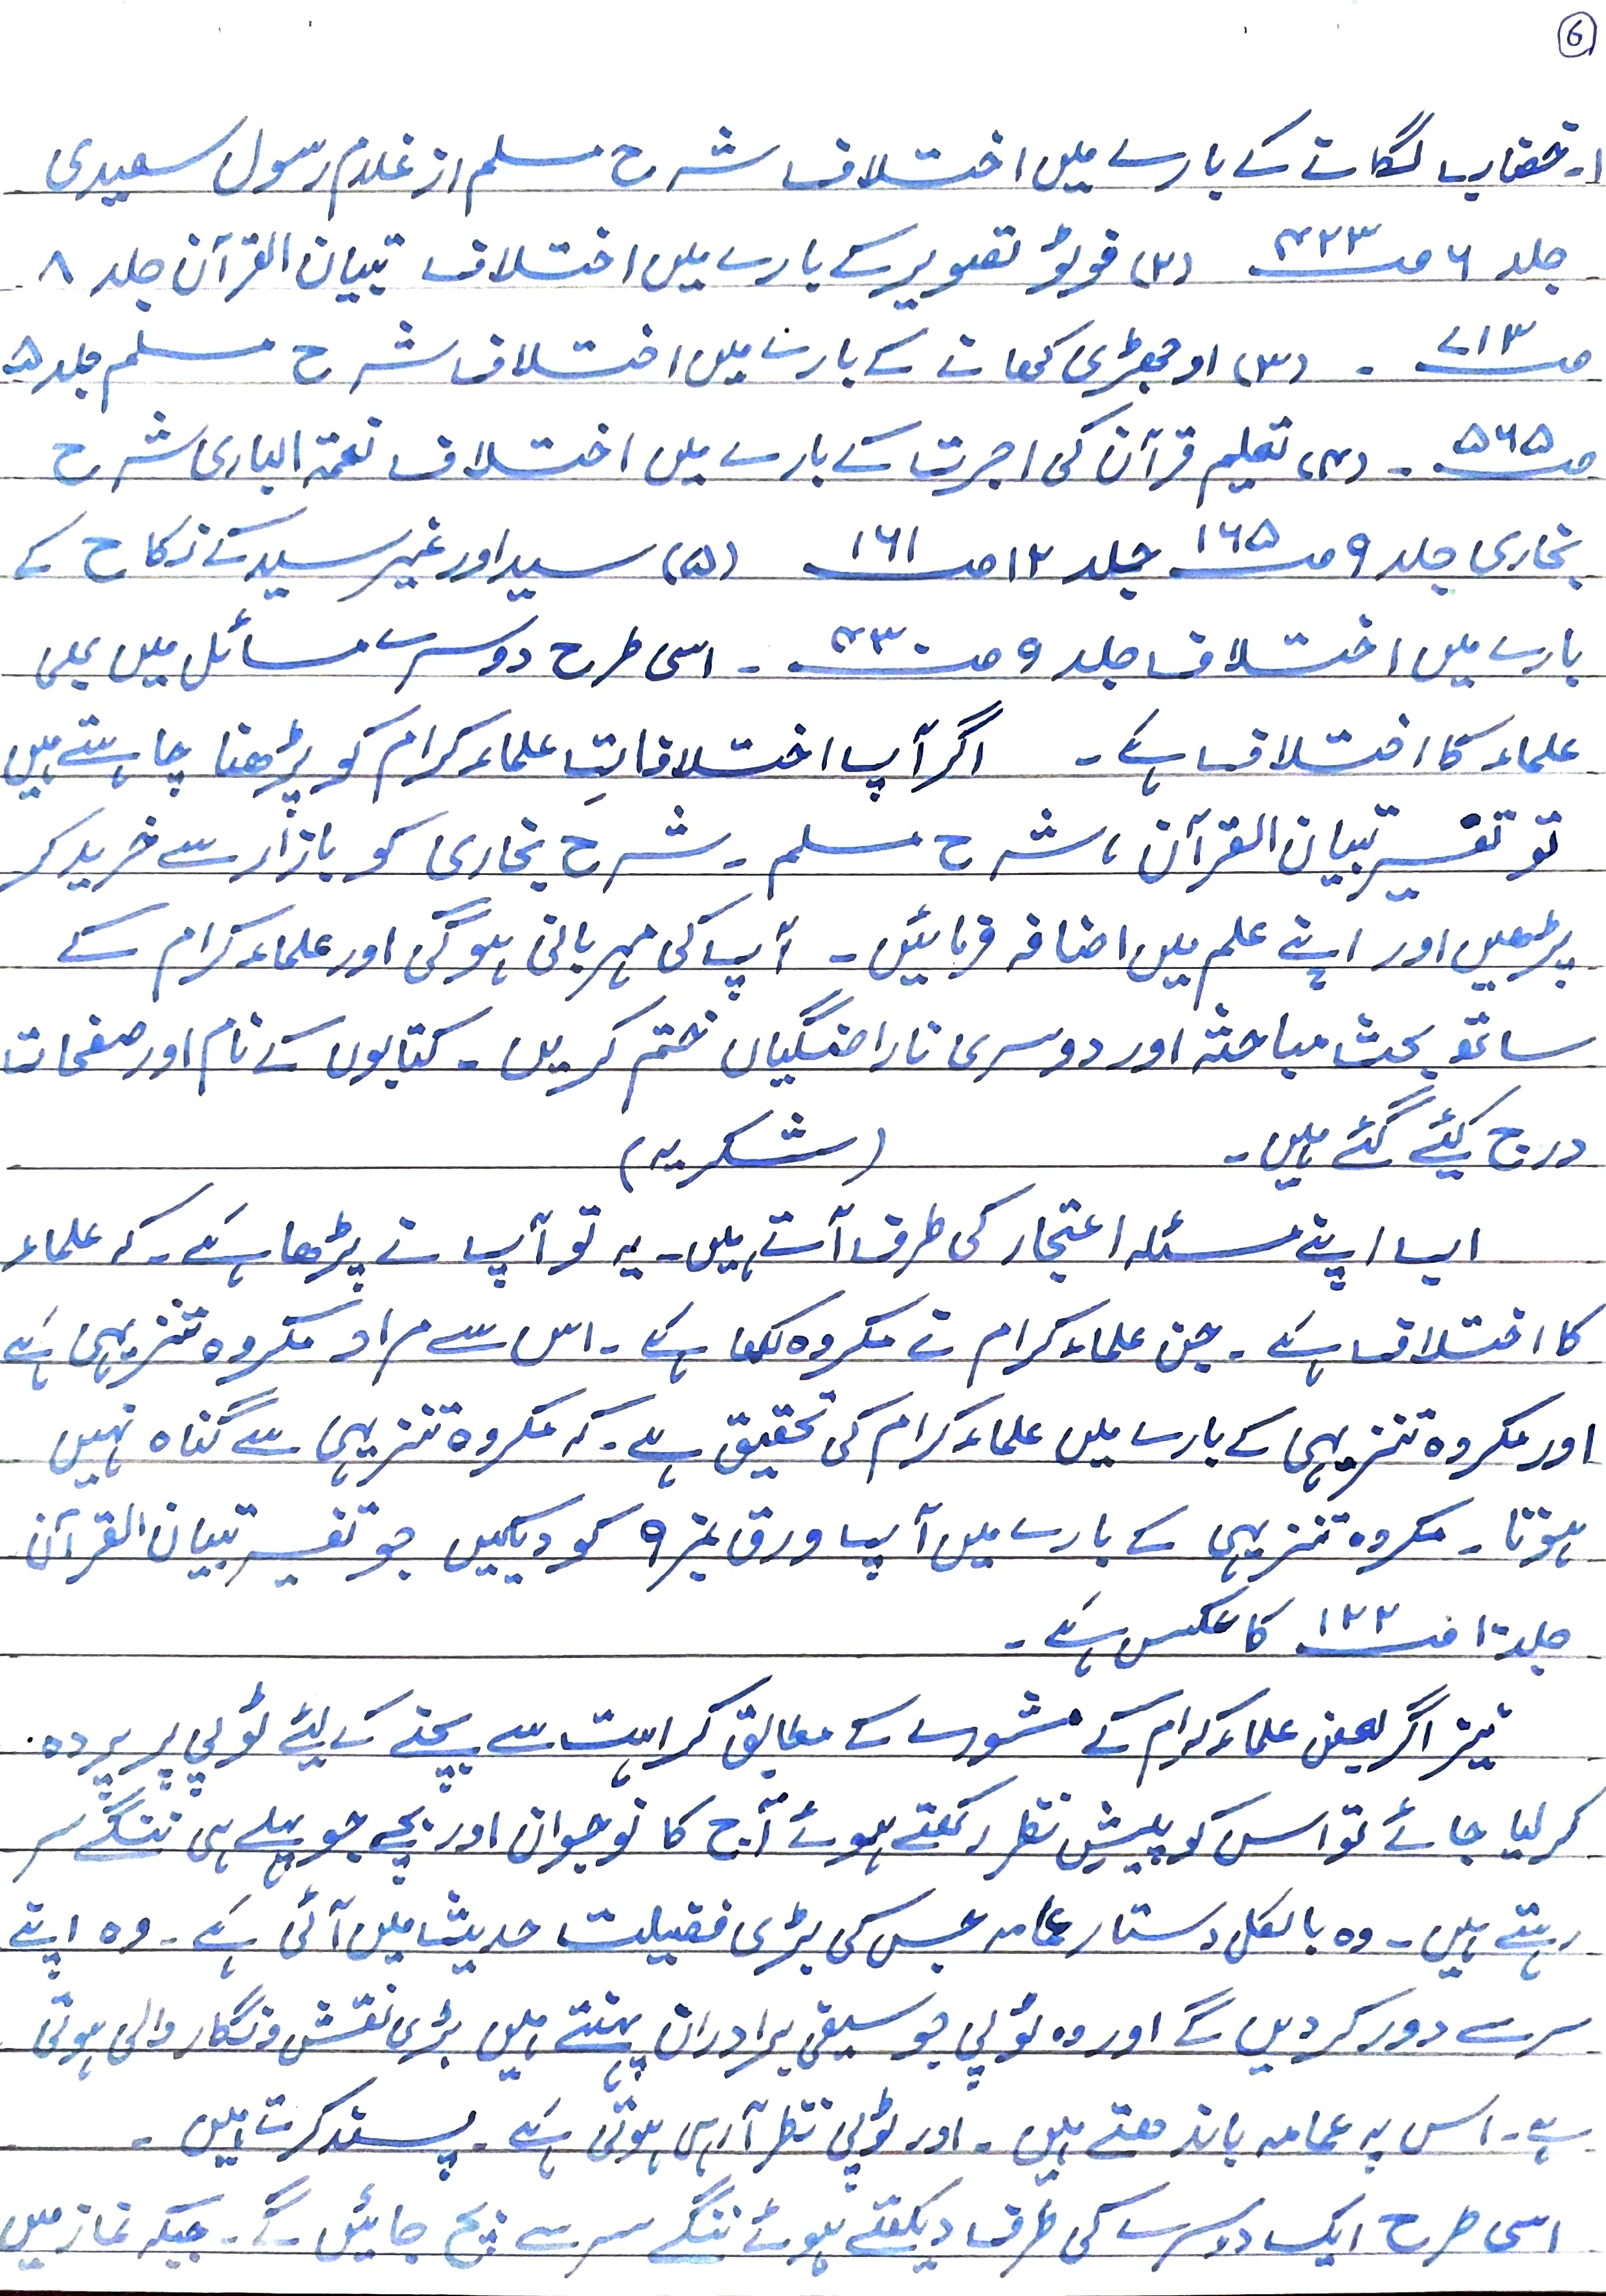 6
۱۔ خضاب لگانے کے بارے میں اختلاف شرح مسلم از غلام رسول سعیدی
جلد ۶ صـ ۴۲۳ (۲) فوٹو تصویر کے بارے میں اختلاف تبیان القرآن جلد ۸
صـ ۷۱۳ ۔ (۳) اوجھڑی کھانے کے بارے میں اختلاف شرح مسلم جلد ۵
صـ ۵۶۵ ۔ (۴) تعلیم قرآن کی اجرت کے بارے میں اختلاف نعمۃ الباری شرح
بخاری جلد ۹ صـ ۱۶۵ جلد ۱۲ صـ ۱۶۱ (۵) سید اور غیر سید کے نکاح کے
بارے میں اختلاف جلد ۹ صـ ۴۳۰ ۔ اسی طرح دوسرے مسائل میں بھی
علماء کا اختلاف ہے ۔ اگر آپ اختلافاتِ علماء کرام کو پڑھنا چاہتے ہیں
تو تفسیر تبیان القرآن ، شرح مسلم ۔ شرح بخاری کو بازار سے خرید کر
پڑھیں اور اپنے علم میں اضافہ فرمائیں ۔ آپ کی مہربانی ہوگی اور علماء کرام کے
ساتھ بحث مباحثہ اور دوسری ناراضگیاں ختم کریں ۔ کتابوں کے نام اور صفحات
درج کیئے گئے ہیں ۔ (شکریہ)
اب اپنے مسئلہ اعتجار کی طرف آتے ہیں ۔ یہ تو آپ نے پڑھا ہے ۔ کہ علماء
کا اختلاف ہے ۔ جن علماء کرام نے مکروہ لکھا ہے ۔ اس سے مراد مکروہ تنزیہی ہے
اور مکروہ تنزیہی کے بارے میں علماء کرام کی تحقیق ہے ۔ کہ مکروہ تنزیہی سے گناہ نہیں
ہوتا ۔ مکروہ تنزیہی کے بارے میں آپ ورق نمبر ۹ کو دیکھیں جو تفسیر تبیان القرآن
جلد ۱ صـ ۱۲۲ کا عکس ہے ۔
نیز اگر بعض علماء کرام کے مشورے کے مطابق کراہت سے بچنے کے لیئے ٹوپی پر پردہ
کر لیا جائے تو اس کو پیشِ نظر رکھتے ہوئے آج کا نوجوان اور بچے جو پہلے ہی ننگے سر
رہتے ہیں ۔ وہ بالکل دستار عمامہ جس کی بڑی فضیلت حدیث میں آئی ہے ۔ وہ اپنے
سر سے دور کر دیں گے اور وہ ٹوپی جو سیفی برادران پہنتے ہیں بڑی نقش و نگار والی ہوتی
ہے ۔ اس پہ عمامہ باندھتے ہیں ۔ اور ٹوپی نظر آرہی ہوتی ہے ۔ پسند کرتے ہیں ۔
اسی طرح ایک دوسرے کی طرف دیکھتے ہوئے ننگے سر سے بچ جائیں گے ۔ جبکہ نماز میں